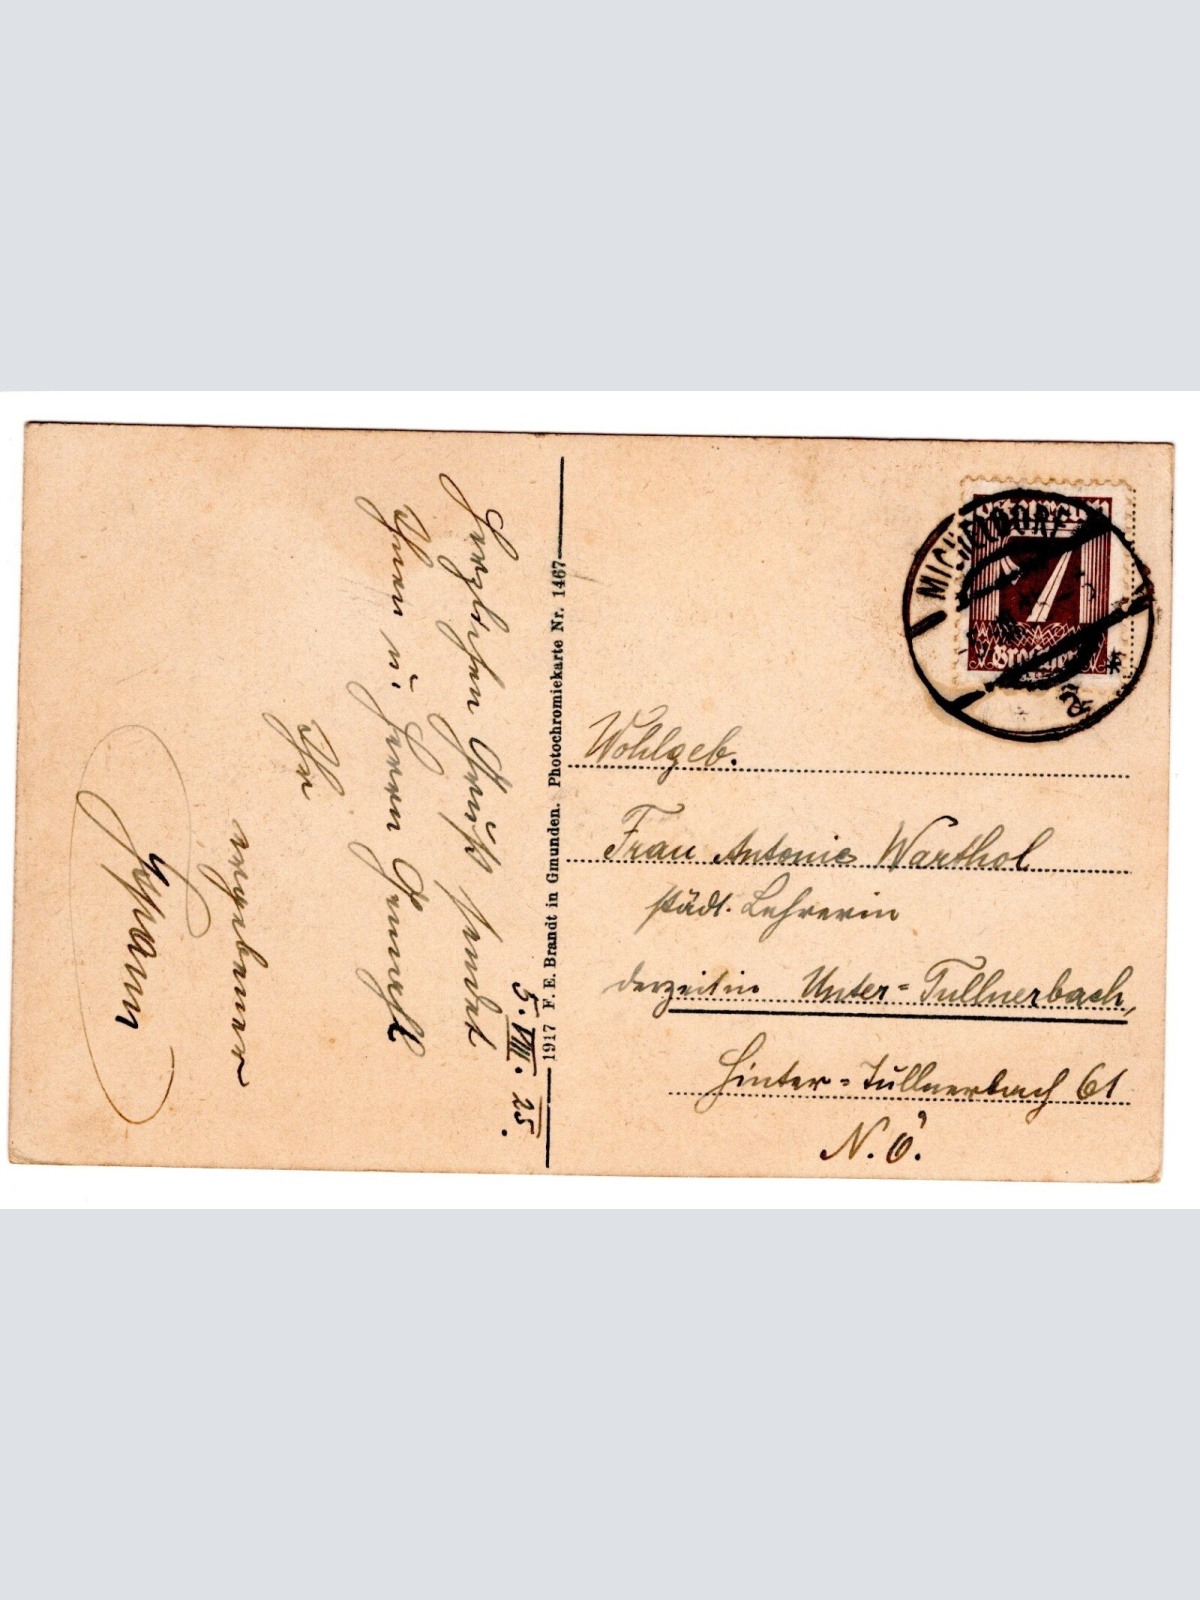 5. VIII. 25.
Herzlichen Gruß sendet
Ihnen u. Herrn Gemahl
Ihr
ergebener
1917 F. E. Brandt in Gmunden. Photochromiekarte Nr. 1467
MICHELDORF
7
Groschen
Wohlgeb.
Frau Antonie Warthol
städt. Lehrerin
derzeit in Unter=Tullnerbach,
Hinter=Tullnerbach 61
N. Ö.